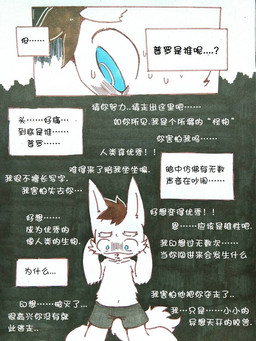 但……
普罗是谁呢....?
请你努力..请走出这里吧……
如你所见.我是个示弱的“怪物”
头……好痛…
到底是谁……
普罗……
你害怕我吗……
人类真优秀！！
难得来了陪我坐坐嘛.
暗中仿佛有无数
声音在吵闹……
我很不擅长写字.
我害怕失去你…
好想变得优秀！！
好想……
成为优秀的
像人类的生物.
……应该是雄性吧.
我幻想过无数次……
当你闯进来会发生什么
为什么…
我害怕他把你夺走了..
幻想……破灭了…
很高兴你没有就
此逝去..
我…只是……小小的
异想天开的胶兽.